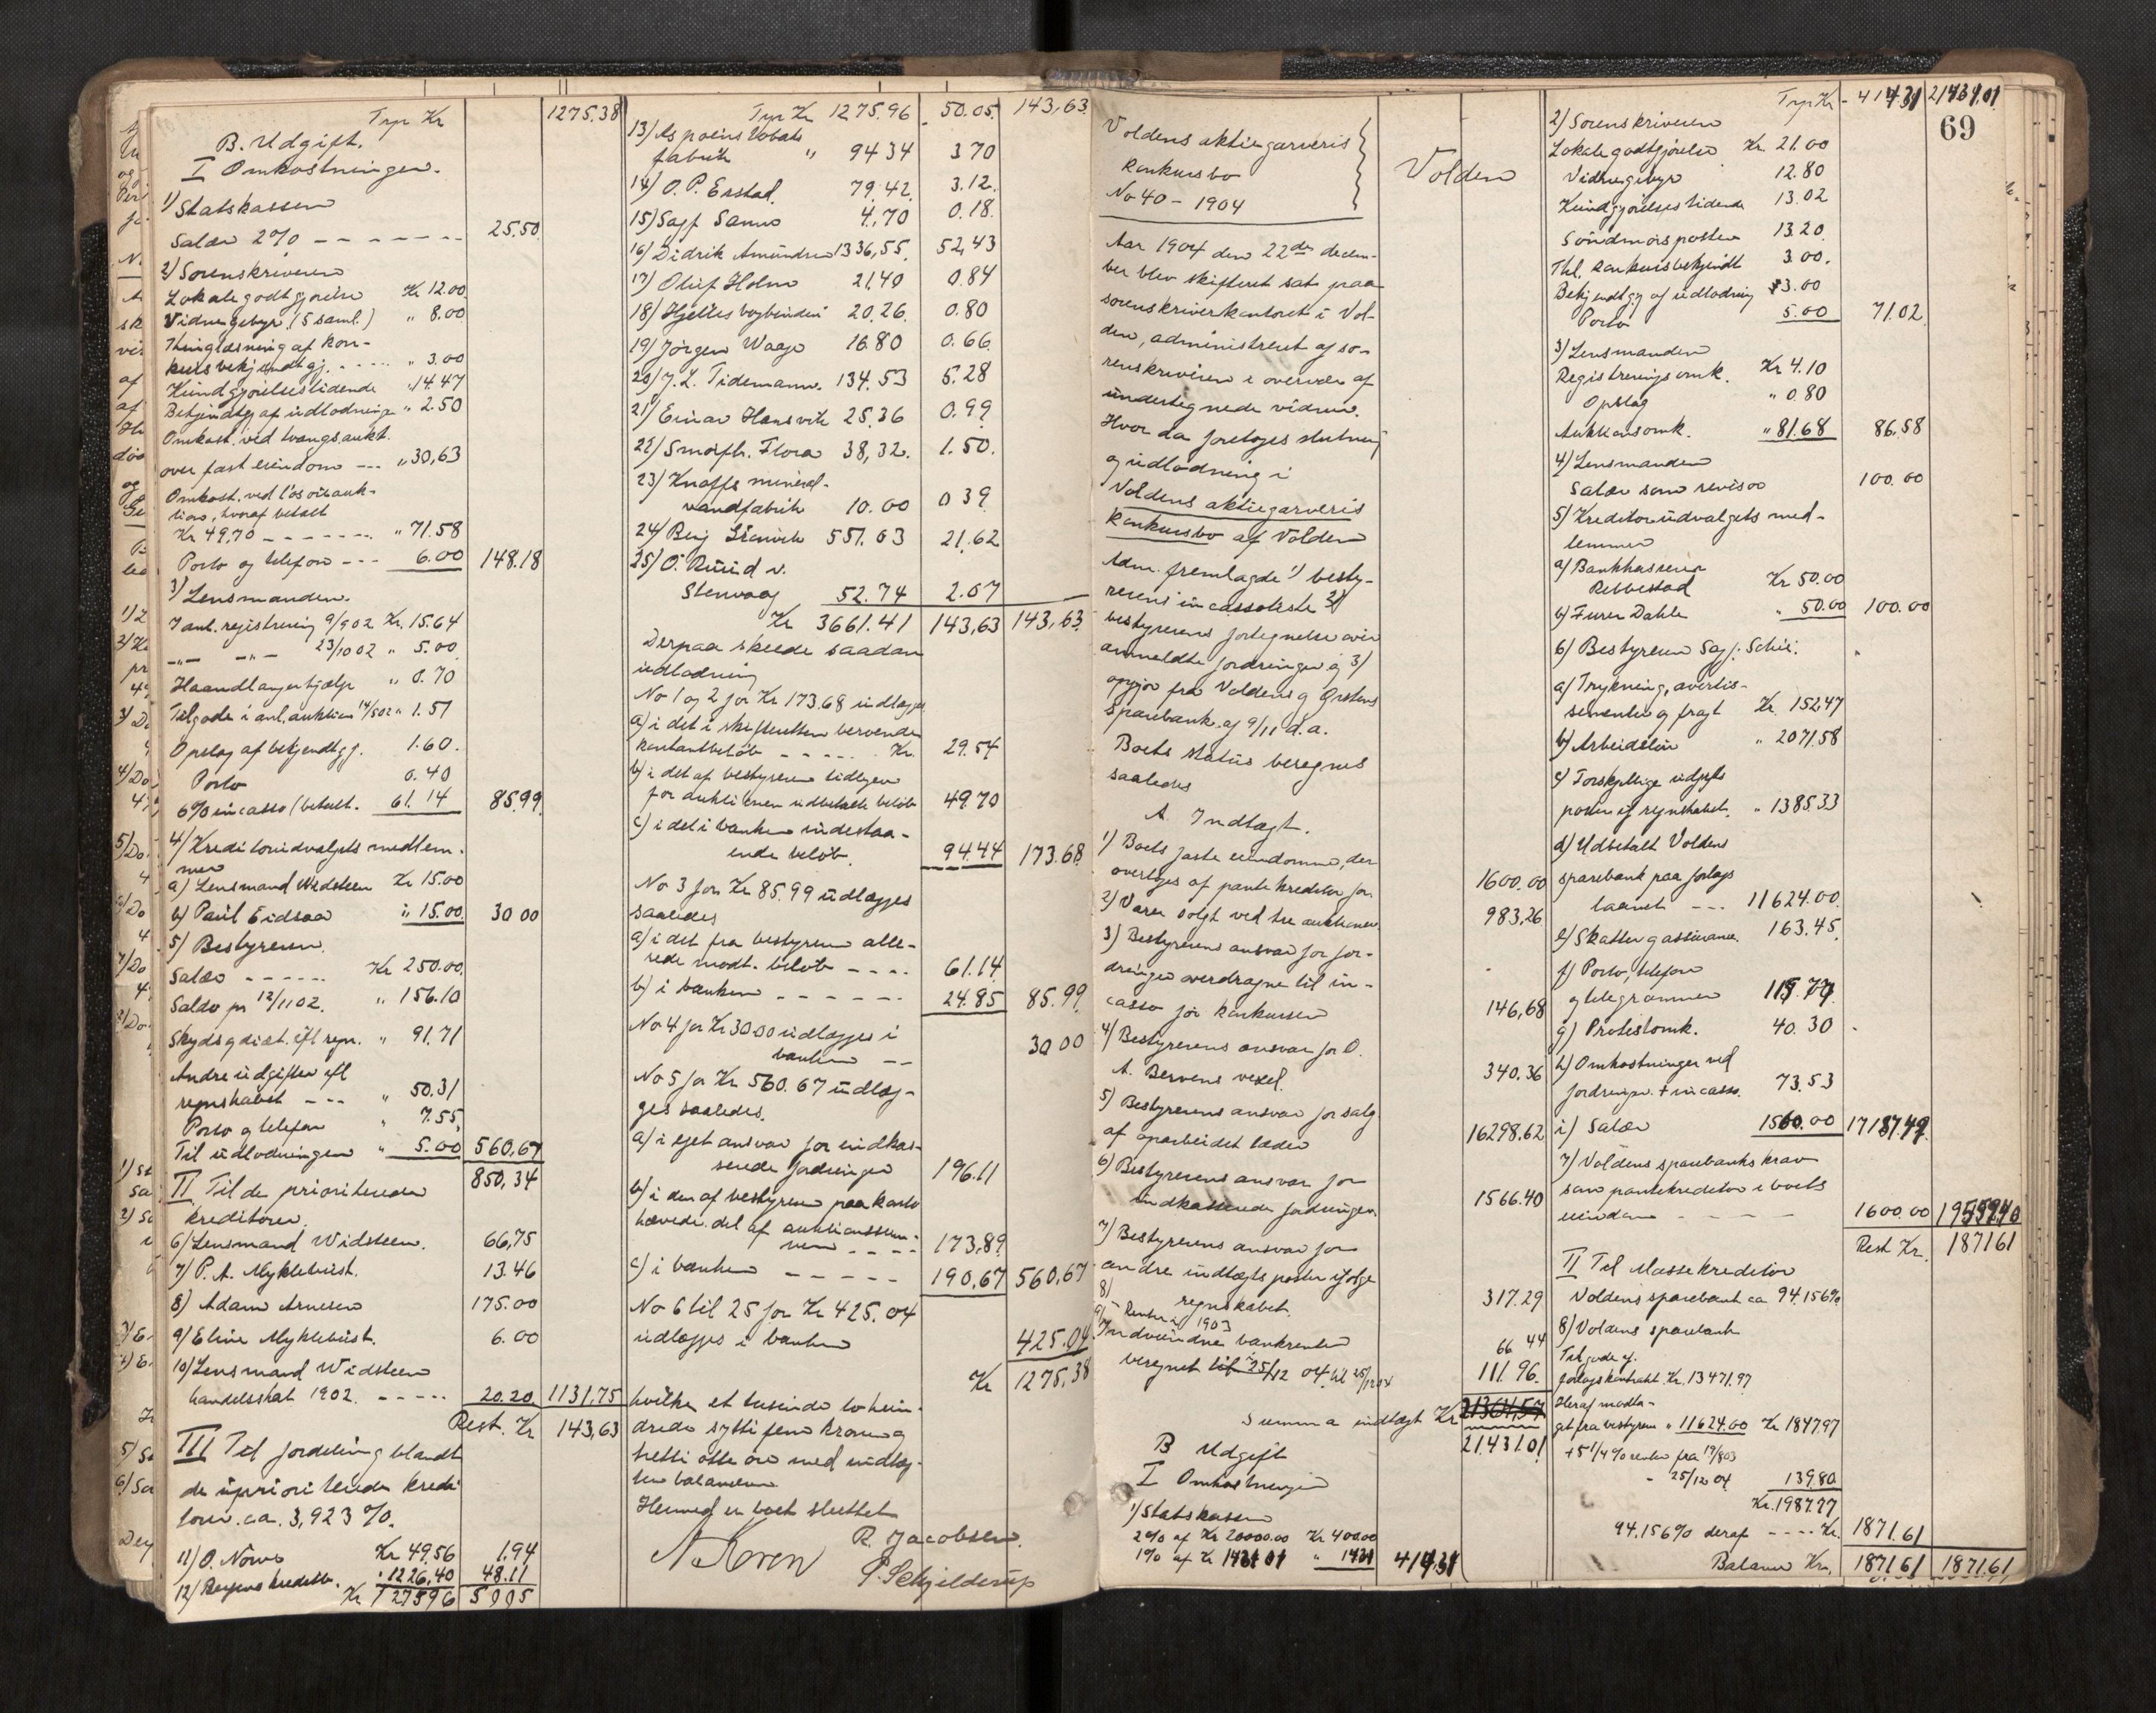 Trp Kr 1275.38
B. Udgift.
I Omkostninger.
1) Statskassen
Salær 2% - - - - - - - 25.50
2) Sorenskriveren
Lokalegodtgjørelse Kr 12.00
Vidnegebyr (5 saml.) " 8.00
Thinglæsning af kon-
kursbekjendtgj. - - - - " 3.00
Kundgjørelsestidende " 14.47
Bekjendtg. af udlodninge " 2.50
Omkost. ved tvangsaukt.
over fast eiendom --- " 30,63
Omkost. ved løsøreauk-
tion, hvoraf betalt
Kr 49,70 - - - - - - - " 71.58
Porto og telefon --- 6.00 148.18
3) Lensmanden.
I anl. registrering 9/9 02 Kr. 15.64
-"- -"- 23/10 02 " 5.00
Haandlangerhjælp " 0.70
Tilgode i anl. auktion 14/5 02 " 1.51
Opslag af bekjendtgj. 1.60.
Porto 0.40
6% incasso (betalt. 61.14 85.99
4) Kreditorudvalgets medlem-
mer
a) Lensmand Widsteen Kr 15.00
b) Paul Eidsaa " 15.00 30 00
5) Bestyreren.
Salær - - - - - Kr 250.00.
Saldo pr 12/11 02. " 156.10
Skyds g diæt. eft regn. " 91.71
Andre udgifter eft
regnskabet --- " 50.31
Porto g telefon " 7.55
Til udlodningen " 5.00 560,67
II Til de prioriterede 850,34
kreditorer.
6) Lensmand Widsteen. 66,75
7) P. A. Myklebust. 13.46
8) Adam Arnesen 175.00
9) Eline Myklebust. 6.00
10) Lensmand Widsteen
handelsskat 1902. - - - - - 20.20 1131,75
Rest. Kr 143,63
III Til fordeling blandt
de upriori terede kredi
torer. ca. 3,923 %.
11) O. Nørve Kr 49.56 1.94
12) Bergens kreditb. " 1226,40 48.11
Kr 1275 96 50 05
Trp Kr 1275.96 50.05 143,63
13)
fabrik " 94 34 3 70
14) O. P. Enstad. 79.42. 3.12.
15) Sagf Sanne 4,70 0.18.
16) Didrik Amundsen 1336,55. 52,43
17) Oluf Holm 21,40 0.84
18) Hjelles bogbinderi 20.26. 0.80
19) Jørgen Waage 16.80 0.66
20) J. L. Tidemann. 134.53 5.28
21) Einar Hansvik 25.36 0.99
22) Smørfb. Flora 38,32. 1.50.
23) Knoffs mineral-
vandfabrik 10.00 0 39
24) Benj Stenvik 551.03 21.62
25) O. Ruud v.
Stenvaag 52.74 2.07
Kr 3661.41 143,63 143,63
Derpaa skeede saadan
udlodning
No 1 og 2 for Kr 173.68 udlægges
a) i det i skifteretten beroende
kontantbeløb - - - - . Kr. 29.54
b) i det af bestyreren tidligere
for auktionen udbetalte beløb 49.70
c) i det i banken indestaa-
ende beløb. 94.44 173.68
No 3 for Kr 85.99 udlægges
saaledes
a) i det fra bestyreren alle-
rede modt. beløb - - - . 61.14
b) i banken - - - - - - 24.85 85.99
No 4 for Kr 30 00 udlægges i
banken -- 30 00
No 5 for Kr 560.67 udlæg-
ges saaledes.
a) i eget ansvar for indkas-
serede fordringer 196.11
b) i den af bestyreren paa konto
hævede. del af auktionssum-
men - - - - 173,89
c) i banken - - - - - 190,67 560,67
No 6 til 25 for Kr 425.04
udlægges i banken 425.04
Kr 1275,38
hvilke et tusinde to hun-
drede sytti fem kroner og
tretti otte øre med indtæg-
ten balancerer
Hermed er boet sluttet
N Koren R. Jacobsen.
P. Schjelderup
Voldens aktiegarveris
konkursbo Volden
No 40 - 1904
Aar 1904 den 22de decem-
ber blev skifteret sat paa
sorenskriverkontoret i Vol-
den, administreret af so-
renskriveren i overvær af
undertegnede vidner.
Hvor da foretoges slutning
og udlodning i
Voldens aktiegarveris
konkursbo af Volden
Adm. fremlagde 1) besty-
rerens incassoliste 2)
bestyrerens fortegnelse over
anmeldte fordringer og 3)
opgjør fra Voldens g Ørstens
Sparebank. af 9/11 d.a.
Boets status beregnes
saaledes
A. Indtægt.
1) Boets faste eiendomme, der
overtoges af pantekreditor for 1600.00
2) Varer solgt ved tre auktioner 983,26
3) Bestyrerens ansvar for for-
dringer overdragne til in-
casso før konkursen 146,68
4) Bestyrerens ansvar for O.
A. Bervens vexel. 340.36
5) Bestyrerens ansvar for salg
af oparbeidet læder 16298.62
6) Bestyrerens ansvar for
indkasserede fordringer. 1566.40
7) Bestyrerens ansvar for
andre indtægtsposter ifølge
regnskabet. 317.29
8) Renter i 1903 66 44
9) Indvundne bankrenter
beregnet til 25/12 04 111 96.
Summa indtægt Kr 21364,57
21431.01
B Udgift
I Omkostninger
1) Statskassen
2% af Kr 20000.00 Kr 400 00
1% af Kr 1431 01 " 1431 414.31
Trp Kr - 414.31 21431.01
69
2) Sorenskriveren
Lokalegodtgjørelse Kr. 21.00
Vidnegebyr 12.80
Kundgjørelsestidende 13.02
Søndmørsposten 13.20.
Thl. konkursbekjendt 3 00.
Bekjendtg. af udlodning 3.00
Porto 5.00 71.02
3) Lensmanden
Registreringsomk. Kr 4.10
Opslag " 0.80
Auktionsomk. " 81.68 86,58
4) Lensmanden
Salær som revisor 100.00
5) Kreditorudvalgets med-
lemmer
a) Bankkasserer
Rebbestad Kr 50.00
b) Furer Dahle " 50.00 100.00
6) Bestyreren Sagf.
a) Trykning, avertis-
sementer g fragt Kr. 152,47
b) Arbeidsløn " 2071.58
c) Forskjellige udgifts
poster if regnskabet. " 1385.33
d) Udbetalt Voldens
sparebank paa forlags
laanet --- 11624.00
e) Skatter g assurance. 163.45
f) Porto, telefon
g telegrammer 115.77
g) Protistomk. 40.30
h) Omkostninger ved
fordringer + incasso. 73.53
i) Salær 1560.00
7) Voldens sparebanks krav
som pantekreditor i boets
eiendom - - - - 1600.00 19559.40
Rest Kr. 1871 61
II Til Massekreditor
Voldens sparebank ca 94.156%
8) Voldens sparebank
Tilgode ef.
forlagskontrakt Kr. 13471.97
Heraf modta-
get fra bestyreren " 11624.00 Kr 1847.97
+ 5 1/4 % renter fra 17/8 03
- 25/12 04 139.80
Kr. 1987.77
94.156% deraf - - - - Kr. 1871.61
Balance Kr. 1871 61 1871.61